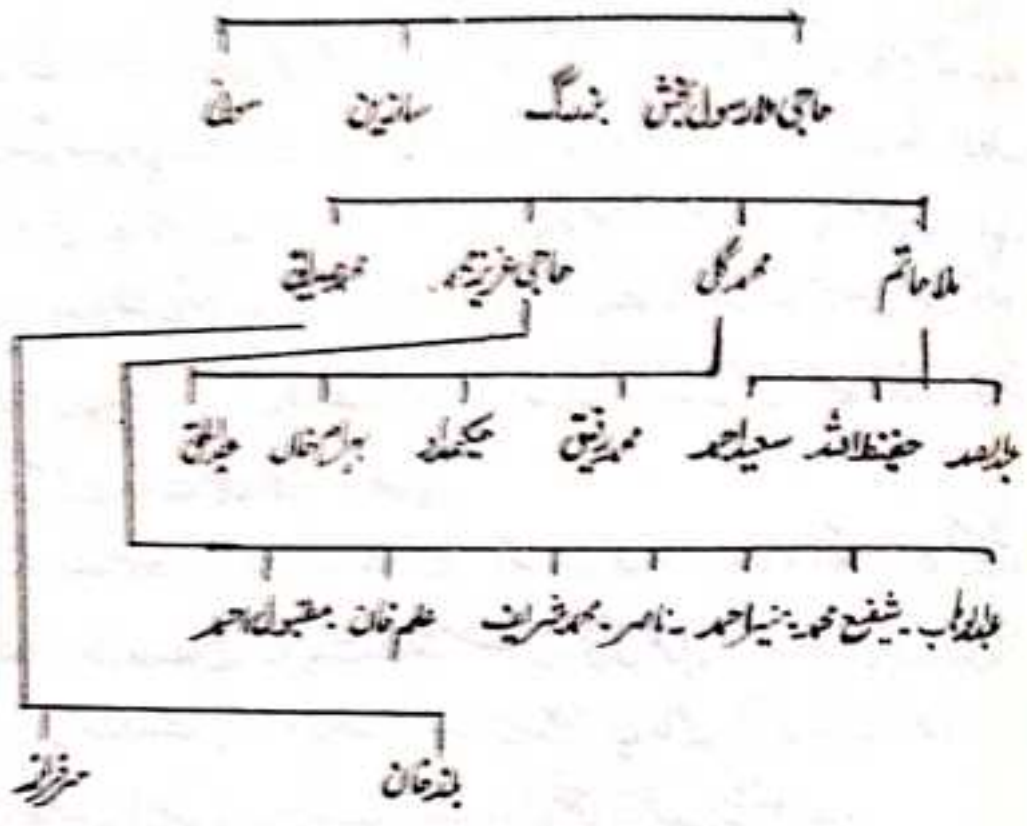 حاجی ملا رسول بخش بزرگ سازین سونی
ملا حاتم محمد گل حاجی عزیز محمد محمد صدیق
عبدالصمد حفیظ اللہ سعید احمد محمد رفیق حکیمداد بہرام خان عبدالحق
عبدالوہاب ۔ شفیع محمد ۔ منیر احمد ۔ ناصر ۔ محمد شریف علم خان ۔ مقبول احمد
بلند خان سرفراز